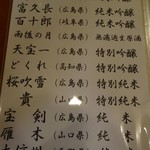 富久長（広島県）純米吟醸
百十郎（岐阜県）純米吟醸
雨後の月（広島県）無濾過生原酒
天宝一（広島県）特別純米
どくれ（高知県）特別純米
桜吹雪（広島県）特別純米
貴（山口県）特別純米
宝剣（広島県）純米
雁木（山口県）純米